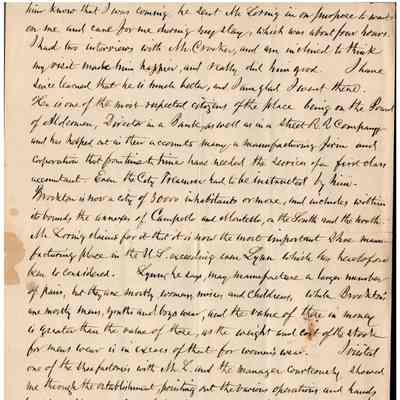 him know that I was coming he sent Mr Loring in on purpose to wait
on me and care for me during my stay, which was about four hours.
I had two interviews with Mr. Crocker, and am inclined to think
my visit made him happier, and really did him good. I have
since learned that he is much better, and I am glad I went there.
He is one of the most respected citizens of the place being on the Board
of Aldermen, Director in a Bank, as well as in a Street R.R. Company
and has helped out in their accounts many a manufacturing firm and
corporation that from time to time have needed the services of a first class
accountant. Even the City Treasurer had to be instructed by him.
Brockton is now a city of 30000 inhabitants or more, and includes within
its bounds, the annexes of Campello and Montello, on the South and the north.
Mr Loring claims for it that it is now the most important Shoe manu-
facturing place in the U.S. exceeding even Lynn which has heretofore
been so considered. Lynn he says, may manufacture a larger number
of pairs, but they are mostly womens, misses and childrens, while Brockton's
are mostly mens, youths and boys wear, and the value of these in money
is greater than the value of those, as the weight and cost of the stock
for mens wear is in excess of that for women's wear. I visited
one of the with Mr L. and the manager courteously showed
me through the establishment, pointing out the various operations and hands